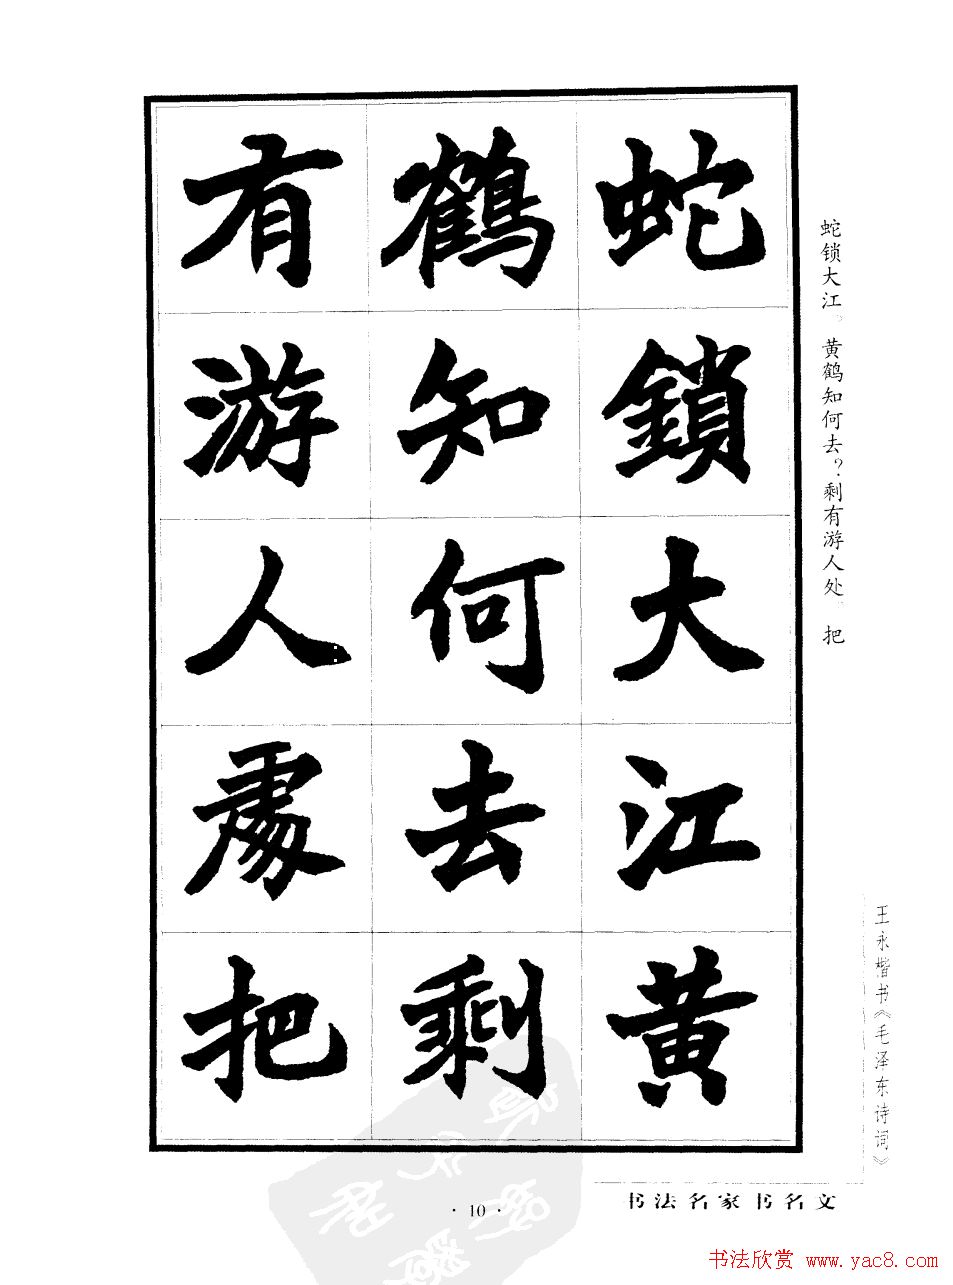 蛇鎖大江黄
鶴知何去剩
有游人處把
蛇锁大江。黄鹤知何去？剩有游人处。把
王永楷书《毛泽东诗词》
书法名家书名文
·10·
书法欣赏 www.yac8.com